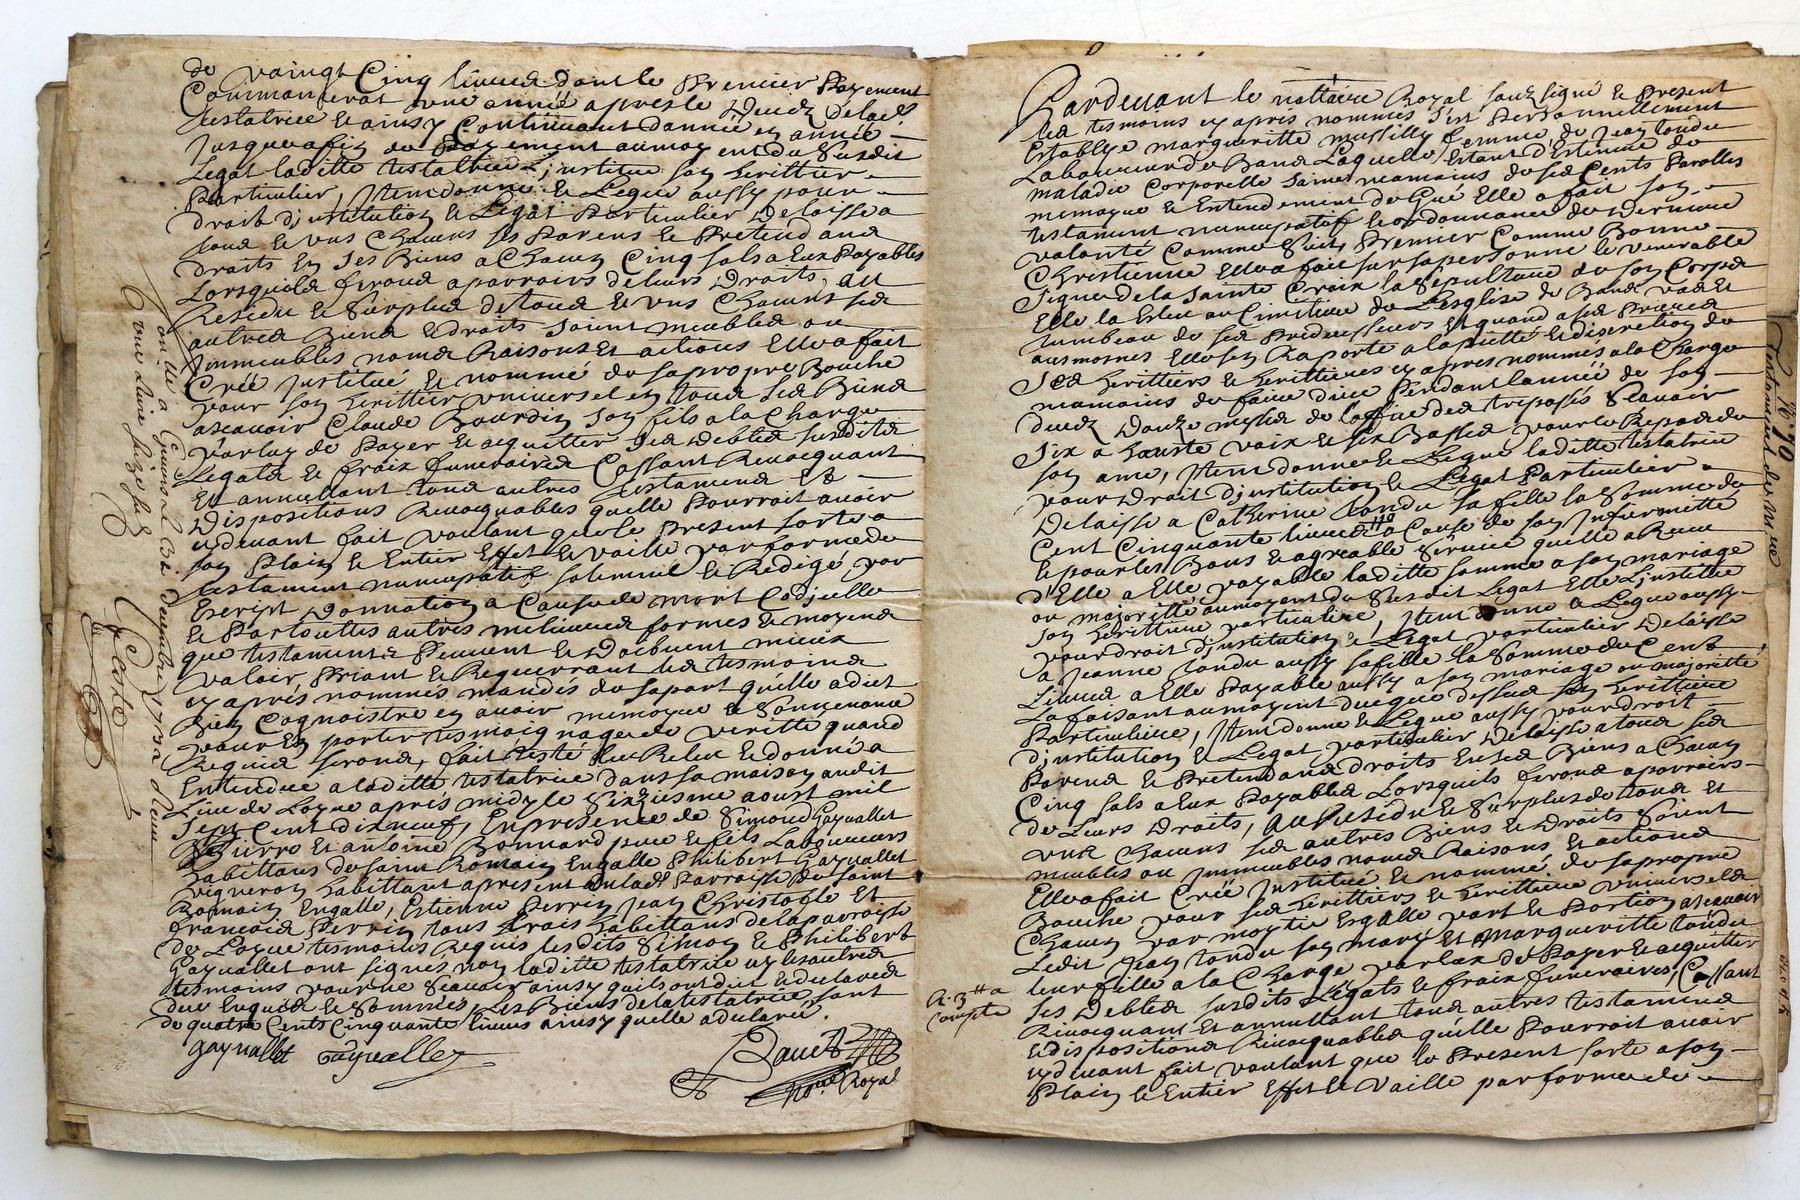 de vaingt Cinq livres dont le Premier Payement
Commancerat une année apres le decez de lad.
testatrice & ainsy Continuant dannée en année
Jusquafin de Payement au moyent du Susdit
Legat laditte testatrice L'institue son heritier
Particulier, Item donne & Legue aussy pour
droit d'institution & Legat Particulier Delaisse a
tous & uns Chacuns ses Parens & Pretendans
droits en ses Biens a Chacun Cinq sols a Eux Payables
Lorsquils feront aparroirs de leurs Droits, au
Residu & Surplus de tous & uns Chacuns ses
autres Biens & droits soient meubles ou
Immeubles noms Raisons Et actions Elle a fait
Créé Institué & nommé de sa propre Bouche
pour son heritier universel en tous ses Biens
ascavoir Claude Bourdin son fils a la Charge
par luy de Payer & acquitter ses debtes susdits
Legats & fraix funeraires Cassant Revocquant
Et annullant tous autres testamens Et
Dispositions Revocquables quelle Pourroit avoir
cydevant fait voulant que le Present sorte a
son Plain & Entier Effet & vaille par forme de
testament nuncupatif solemnel & Redigé par
Escript donnation a Cause de mort Codicille
& Partouttes autres meilieures formes & moyens
que testaments Peuvent & Doibvent mieux
valoir, Priant & Requerrant les tesmoins
cy aprés nommés mandés de sa part qu'elle a dict
Bien Cognoistre en avoir memoyre & Souvenance
pour En porter tesmoignage de verité quand
Requis seront, fait testé leu Releu & donné a
Entendre a laditte testatrice dans sa maison audit
Lieu de Loyue aprés midy le Sixziesme aoust mil
Sept Cent dixneuf, En presence de Simond Gayvallet
Pierre Et antoine Bonnard pere & fils Laboureurs
habittans de Saint Romain Engalle Philibert Gayvallet
vigneron habittant apresent en lad. Parroisse de Saint
Romain Engalle, Estienne Perrin Jean Christofle Et
françois Perrin tous trois habittans de la parroisse
de Loyue tesmoins Requis lesdits Simon & Philibert
Gayvallet ont signés non laditte testatrice ny les autres
tesmoins pour ne Scavoir ainsy quils ont dit & declarés
due Enquis & Sommés, Les Biens de la testatrice sont
de quatre Cents Cinquante livres ainsy quelle a declarée.
gayvallet Gayvallet
no.re Royal
une livre seize sols
Pardevant le nottaire Royal soubsigné & Present
les tesmoins cy apres nommés s'est Personnellement
Establye margueritte mussilly femme de Jean tondu
Laboureur de Bans Laquelle Estant d'Estenue de
maladie Corporelle Saine neamoins de ses Cents Parolles
memoyre & Entendement du Gré Elle a fait son
testament nuncupatif & ordonnance de Derniere
volonté Comme Suit, Premier Comme Bonne
Christienne Elle a fait sur sa personne le venerable
Signe de la Sainte Croix la Sepulture de son Corps
Elle la Esleu au Cimitiere de L'esglise de Bans vas Et
tumbeau de ses Predecesseurs Et quand a ses Prieres
aumosnes Elle s'en Raporte a la pietté & discretion de
Ses heritiers & heritieres cy apres nommés a la Charge
neamoins de faire dire Pendant lannée de son
decez Douze messes de L'office des trepasés Scavoir
Six a hauste voix & six Basses pour le Repos de
son ame, Item donne & Legue laditte testatrice
pour Droit d'institution & Legat Particulier
Delaisse a Catherine tondu sa fille la Somme de
Cent Cinquante livres a Cause de son Infirmitté
& pour les Bons & agreable Service quelle a Receu
d'Elle a Elle payable laditte somme a son mariage
ou majoritté au moyent du Susdit Legat Elle L'institue
son heritiere particuliere, Item donne & Legue aussy
pour droit d'institution & Legat particulier Delaisse
a Jeanne tondu aussy sa fille la Somme de Cent
Livres a Elle Payable aussy a son mariage ou majoritté
La faisant au moyent du que dessus son heritiere
Particuliere, Item donne & Legue aussy pour droit
d'institution & Legat particulier Delaisse a tous ses
Parens & Pretendans droits En ses Biens a Chacun
Cinq sols a Eux Payables Lorsquils feront aparroirs
de Leurs Droits, au Residu & Surplus de tous Et
uns Chacuns ses autres Biens & Droits Soient
meubles ou Immeubles noms Raisons Et actions
Elle a fait Créé Institué & nommé de sa propre
Bouche pour ses heritiers & heritiere universels
Chacun par moytie Esgalle part & Portion ascavoir
Ledit Jean tondu son mary Et Margueritte tondu
leur fille a la Charge par Eux de Payer & acquitter
Ses Debtes susdits Legats & fraix funeraires, Cassant
Revocquant Et annullant tous autres testamens
& dispositions Revocquables quelle Pourroit avoir
cydevant fait voulant que le Present sorte a son
Plain & Entier Effet & Vaille par forme de
compte
N.º 90